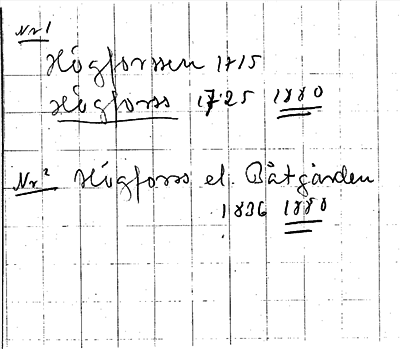 Nr 1
Högforssen 1715
Högforss 1725 1880
Nr 2 Högforss el. Båtgården
1836 1880